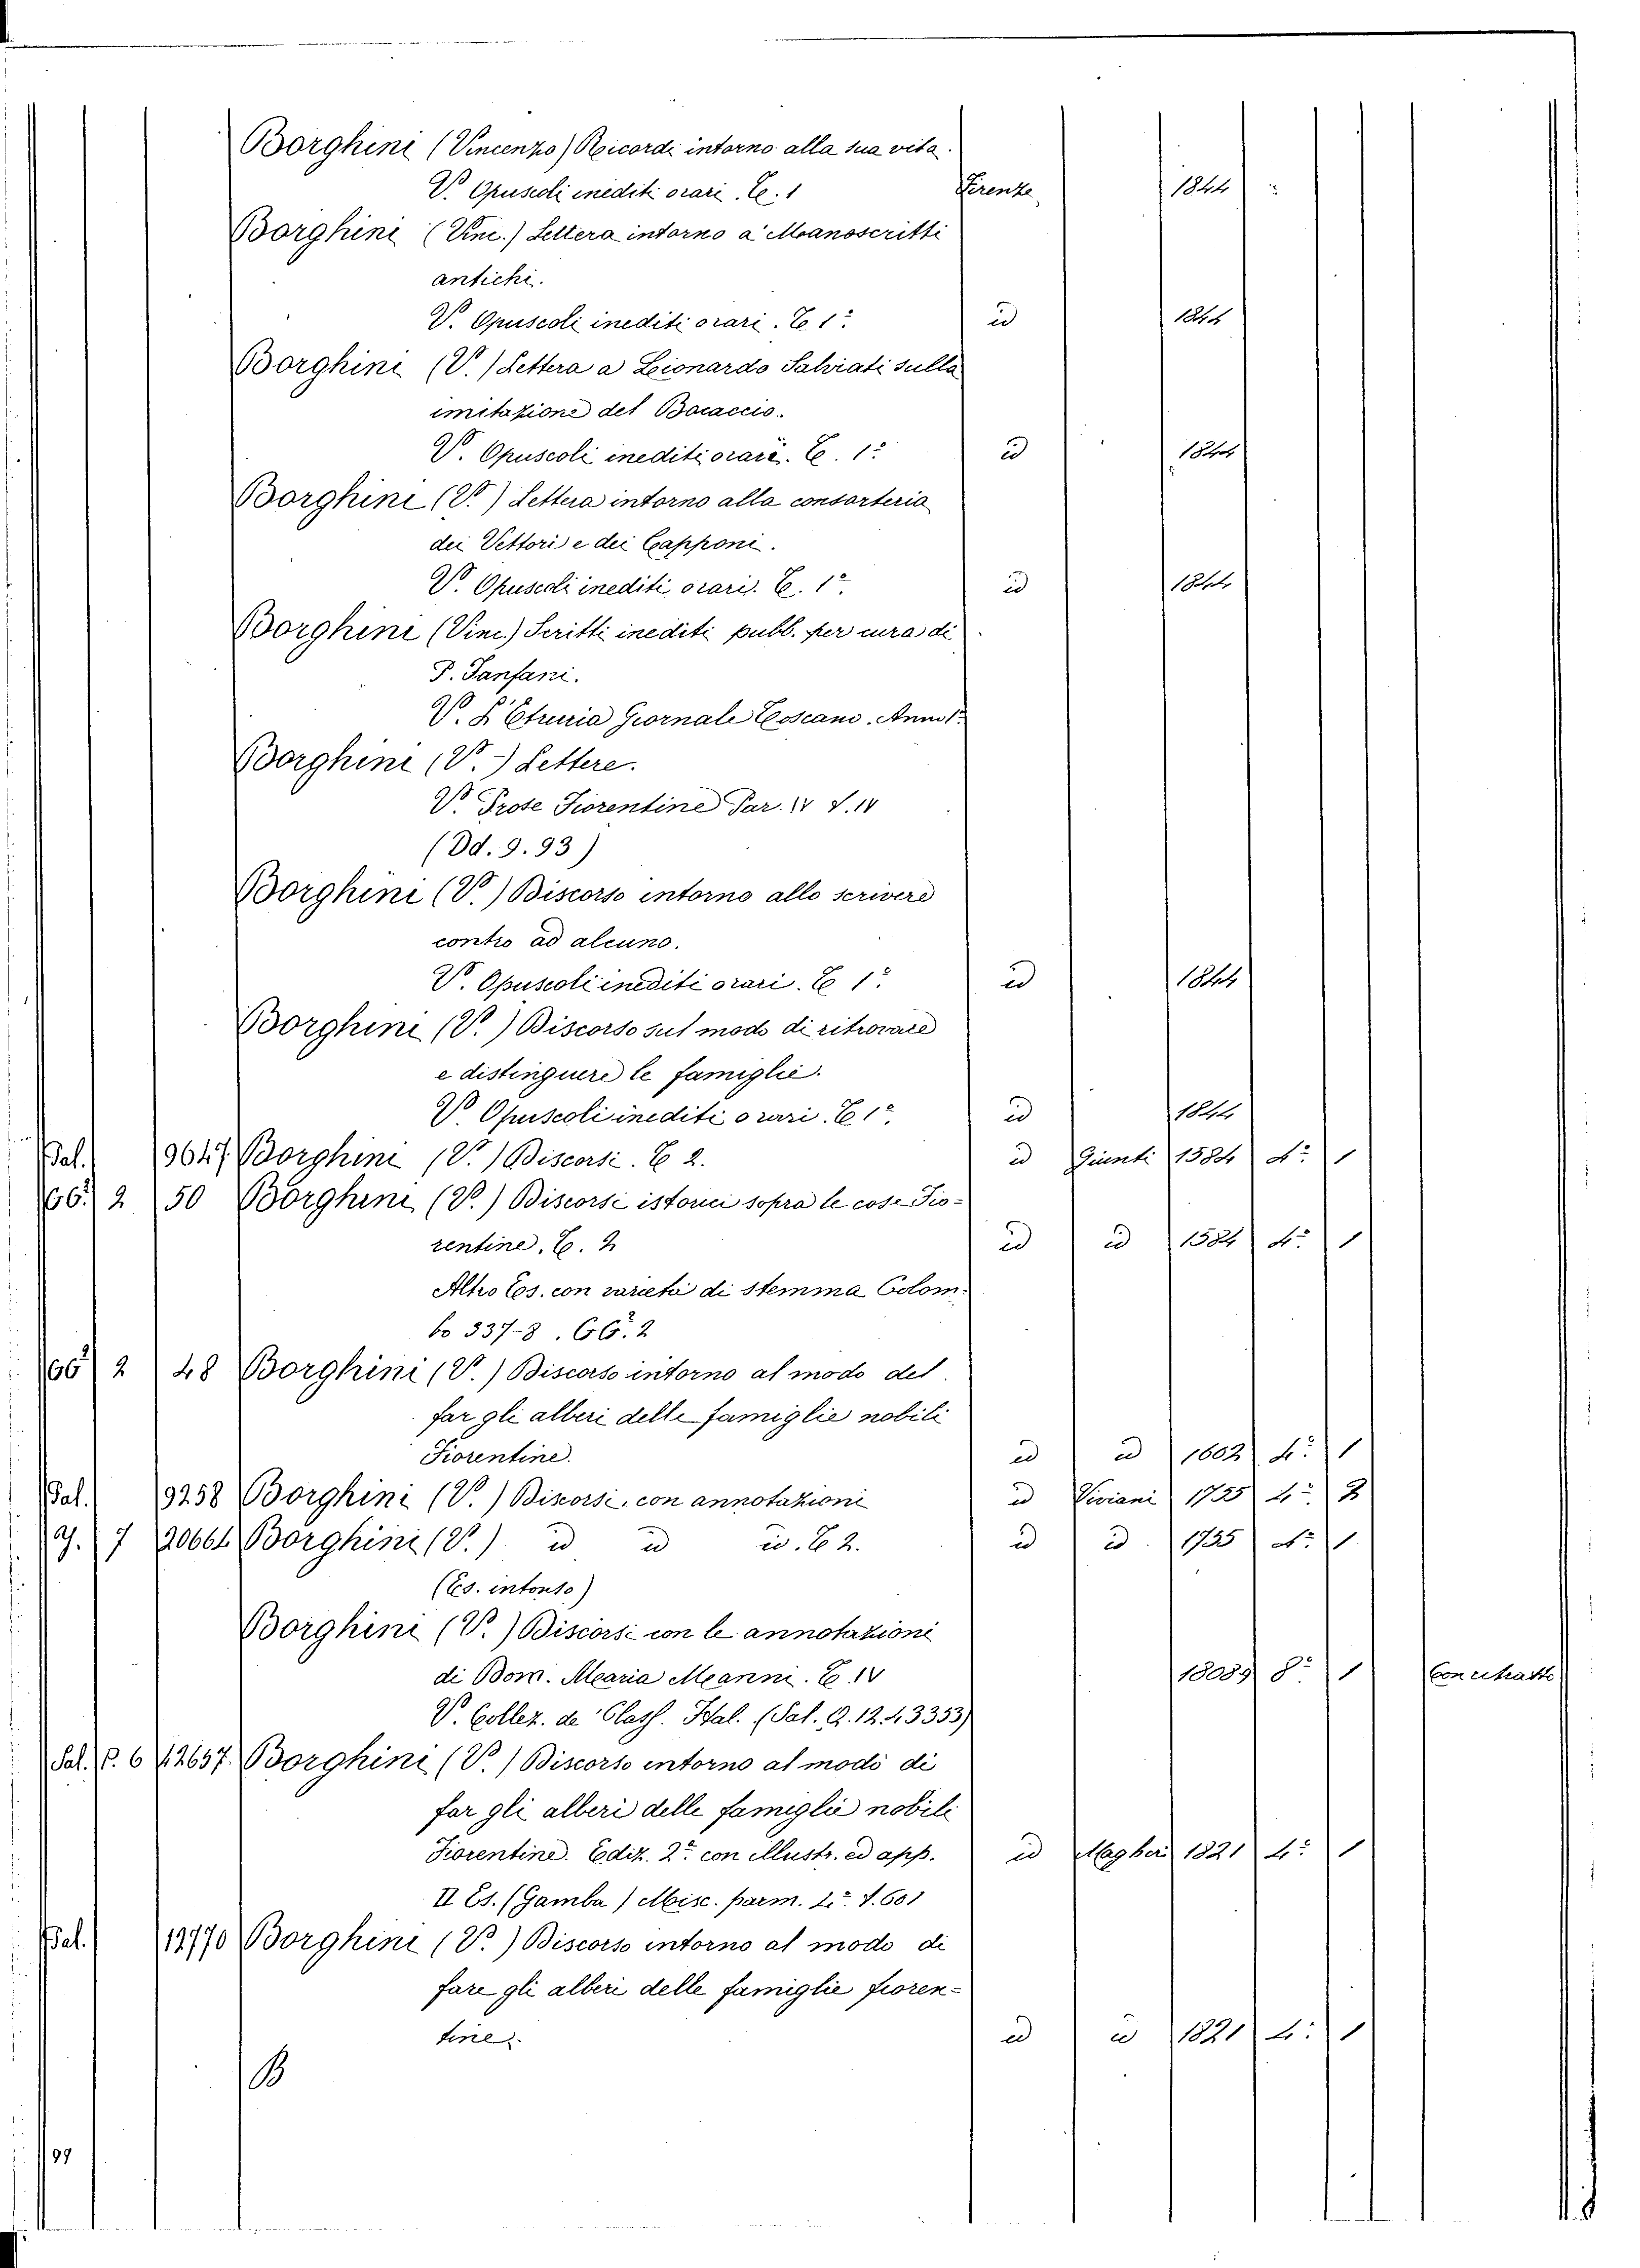 Borghini (Vincenzo) Ricordi intorno alla sua vita.
V. Opuscoli inediti o rari. T. 1 Firenze 1844
Borghini (Vinc.) Lettera intorno a' Manoscritti
antichi.
V. Opuscoli inediti o rari. T. 1º id 1844
Borghini (V.) Lettera a Lionardo Salviati sulla
imitazione del Bocaccio.
V. Opuscoli inediti o rari. T. 1º id 1844
Borghini (V.) Lettera intorno alla consorteria
dei Vettori e dei Capponi.
V. Opuscoli inediti o rari. T. 1º id 1844
Borghini (Vinc.) Scritti inediti pubb. per cura di
P. Fanfani.
V. L'Etruria Giornale Toscano. Anno 1º
Borghini (V.) Lettere.
V. Prose Fiorentine Par. IV V. IV
(Dd. 9. 93)
Borghini (V.) Discorso intorno allo scrivere
contro ad alcuno.
V. Opuscoli inediti o rari. T 1º id 1844
Borghini (V.) Discorso sul modo di ritrovare
e distinguere le famiglie.
V. Opuscoli inediti o rari. T 1º. id 1844
Pal. 9647 Borghini (V.) Discorsi. T 2. id Giunti 1584 4º 1
GG. 2 50 Borghini (V.) Discorsi istorici sopra le cose Fio-
rentine, T. 2 id id 1584 4º 1
Altro Es. con varietà di stemma Colom-
bo 337-8. GG. 2
GG 2 48 Borghini (V.) Discorso intorno al modo del
far gli alberi delle famiglie nobili
Fiorentine. id id 1602 4º 1
Pal. 9258 Borghini (V.) Discorsi, con annotazioni id Viviani 1755 4º 2
7 20664 Borghini (V.) id id id. T 2. id id 1755 4º 1
(Es. intonso)
Borghini (V.) Discorsi con le annotazioni
di Dom. Maria Manni. T. IV 18089 8º 1 Con ritratto
V. Collez. de' Class. Ital. (Pal. Q. 12. 43353)
Pal. P. 6 12657 Borghini (V.) Discorso intorno al modo di
far gli alberi delle famiglie nobili
Fiorentine. Ediz. 2ª con illustr. ed app. id Magheri 1821 4º 1
II Es. (Gamba) Misc. parm. 4º V. 601
Pal. 12770 Borghini (V.) Discorso intorno al modo di
fare gli alberi delle famiglie fioren-
tine. id id 1821 4º 1
B
99